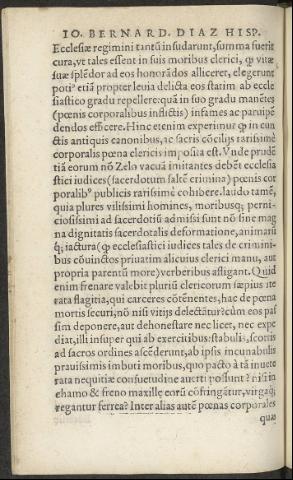 IO. BERNARD. DIAZ HISP.
Ecclesiæ regimini tantū insudarunt, summa fuerit
cura, vt tales essent in suis moribus clerici, ꝙ vitæ
suæ splēdor ad eos honorādos alliceret, elegerunt
poti⁹ etiā propter leuia delicta eos statim ab eccle
siastico gradu repellere: quā in suo gradu manētes
(pœnis corporalibus inflictis) infames ac paruipē
dendos efficere. Hinc etenim experimur ꝙ in cun
ctis antiquis canonibus, ac sacris cōcilijs rarissimè
corporalis pœna clericis imposita est. Vnde prudē
tiā eorum nō Zelo vacuā imitantes debēt ecclesia
stici iudices (sacerdotum saltē crimina) pœnis cor
poralib⁹ publicis rarissimè cohibere. laudo tamē,
quia plures vilissimi homines, moribusq; perni-
ciosissimi ad sacerdotiū admissi sunt nō sine mag
na dignitatis sacerdotalis deformatione, animarū
q; iactura (ꝙ ecclesiastici iudices tales de crimini-
bus cōuinctos priuatim alicuius clerici manu, aut
propria parentū more) verberibus astigant. Quid
enim frenare valebit pluriū clericorum sæpius ite
rata flagitia, qui carceres cōtēnentes, hac de pœna
mortis securi, nō nisi vitijs delectātur? cùm eos pas
sim deponere, aut dehonestare nec licet, nec expe
diat, illi insuper qui ab exercitibus: stabulis, scortis
ad sacros ordines ascēderunt, ab ipsis incunabulis
prauissimis imbuti moribus, quo pacto à tā inuete
rata nequitiæ consuetudine auerti possunt? nisi in
chamo & freno maxille eorū cōfringātur, virgaq;
regantur ferrea? Inter alias autē pœnas corporales
quæ